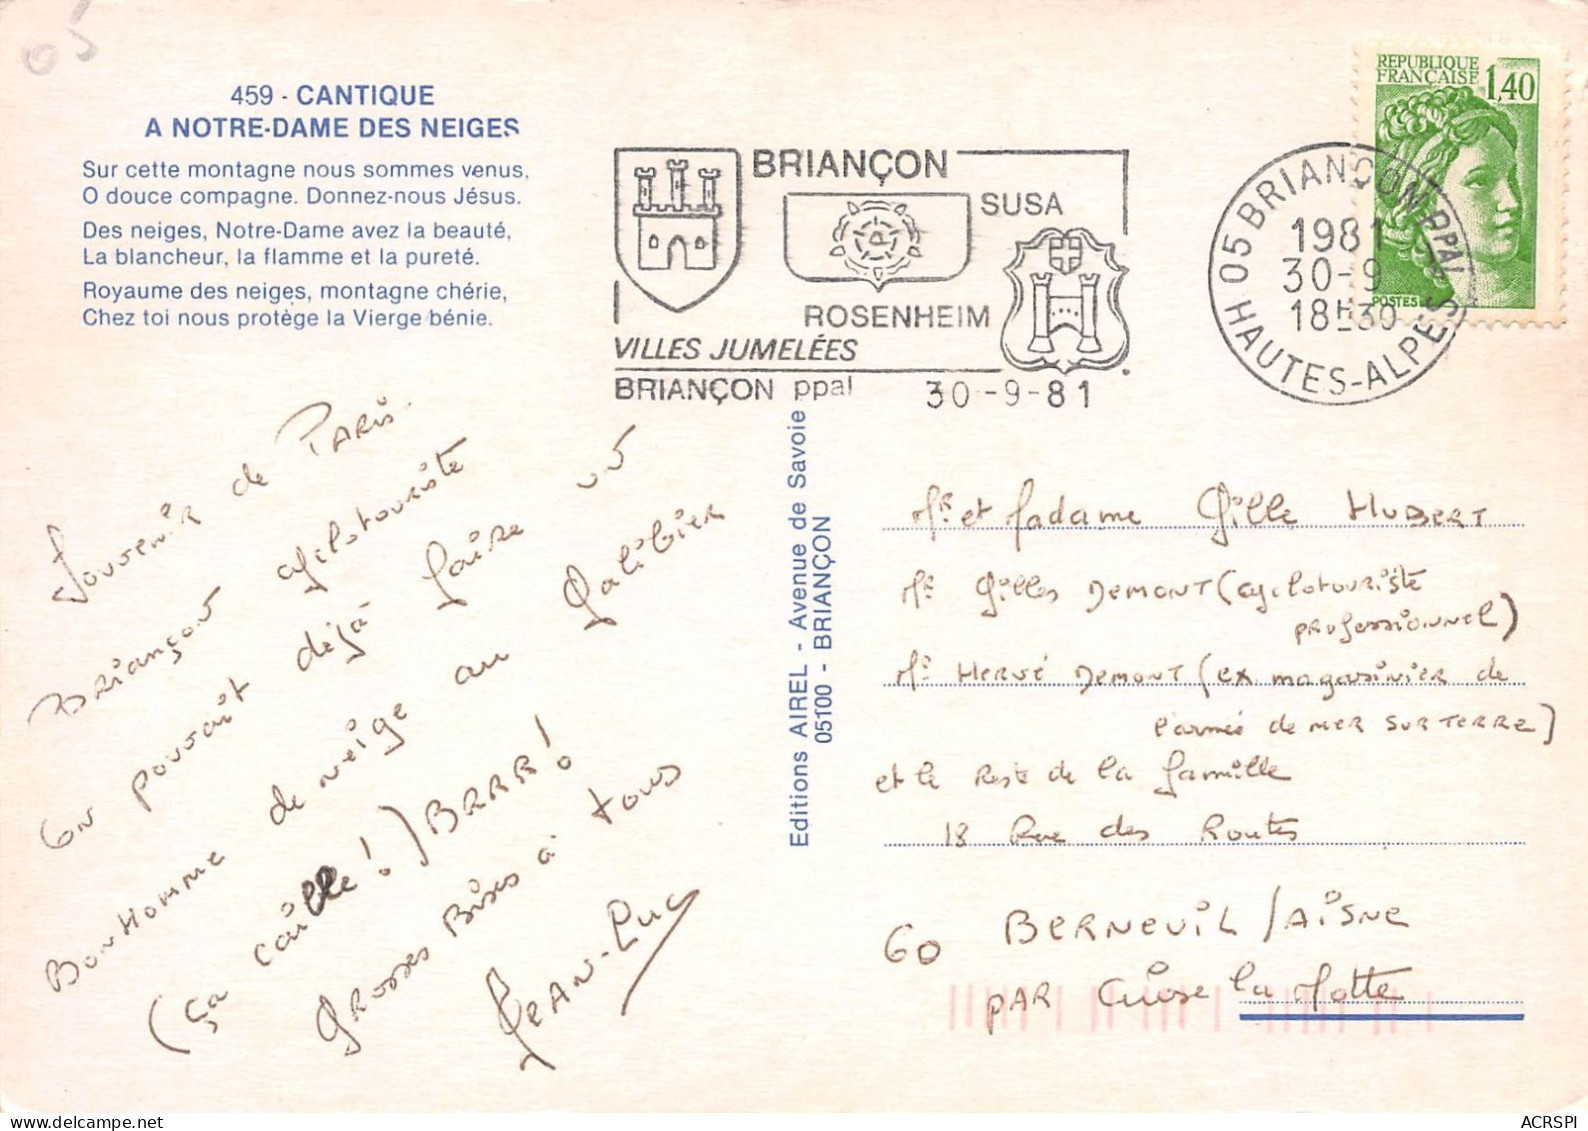 05
459 - CANTIQUE
A NOTRE-DAME DES NEIGES
Sur cette montagne nous sommes venus,
O douce compagne. Donnez-nous Jésus.
Des neiges, Notre-Dame avez la beauté,
La blancheur, la flamme et la pureté.
Royaume des neiges, montagne chérie,
Chez toi nous protège la Vierge bénie.
BRIANÇON
SUSA
ROSENHEIM
VILLES JUMELÉES
BRIANÇON ppal 30-9-81
05 BRIANÇON PPAL
1981
30-9
18H30
HAUTES-ALPES
REPUBLIQUE
FRANÇAISE 1,40
POSTES
Souvenir de PARIS
BRIANÇON cyclotouriste
On pouvait déjà faire un
BONHOMME de neige au Galibier
(ça caille!) BRRR!
Grosses Bises à tous
JEAN-LUC
Editions AIREL - Avenue de Savoie
05100 - BRIANÇON
Mr et Madame Gille HUBERT
Mr Gilles DEMONT (cyclotouriste
PROfessionnel)
Mr HERVÉ DEMONT (ex magasinier de
l'armée de MER SUR TERRE)
et le Reste de la famille
18 Rue des Routes
60 BERNEUIL/AISNE
PAR Cuise la Motte
ACRSPI